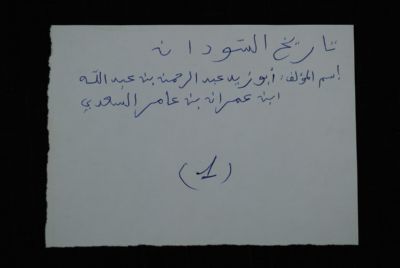 تاريخ السودان
إسم المؤلف: أبو زيد عبد الرحمن بن عبد الله
ابن عمران بن عامر السعدي
(1)